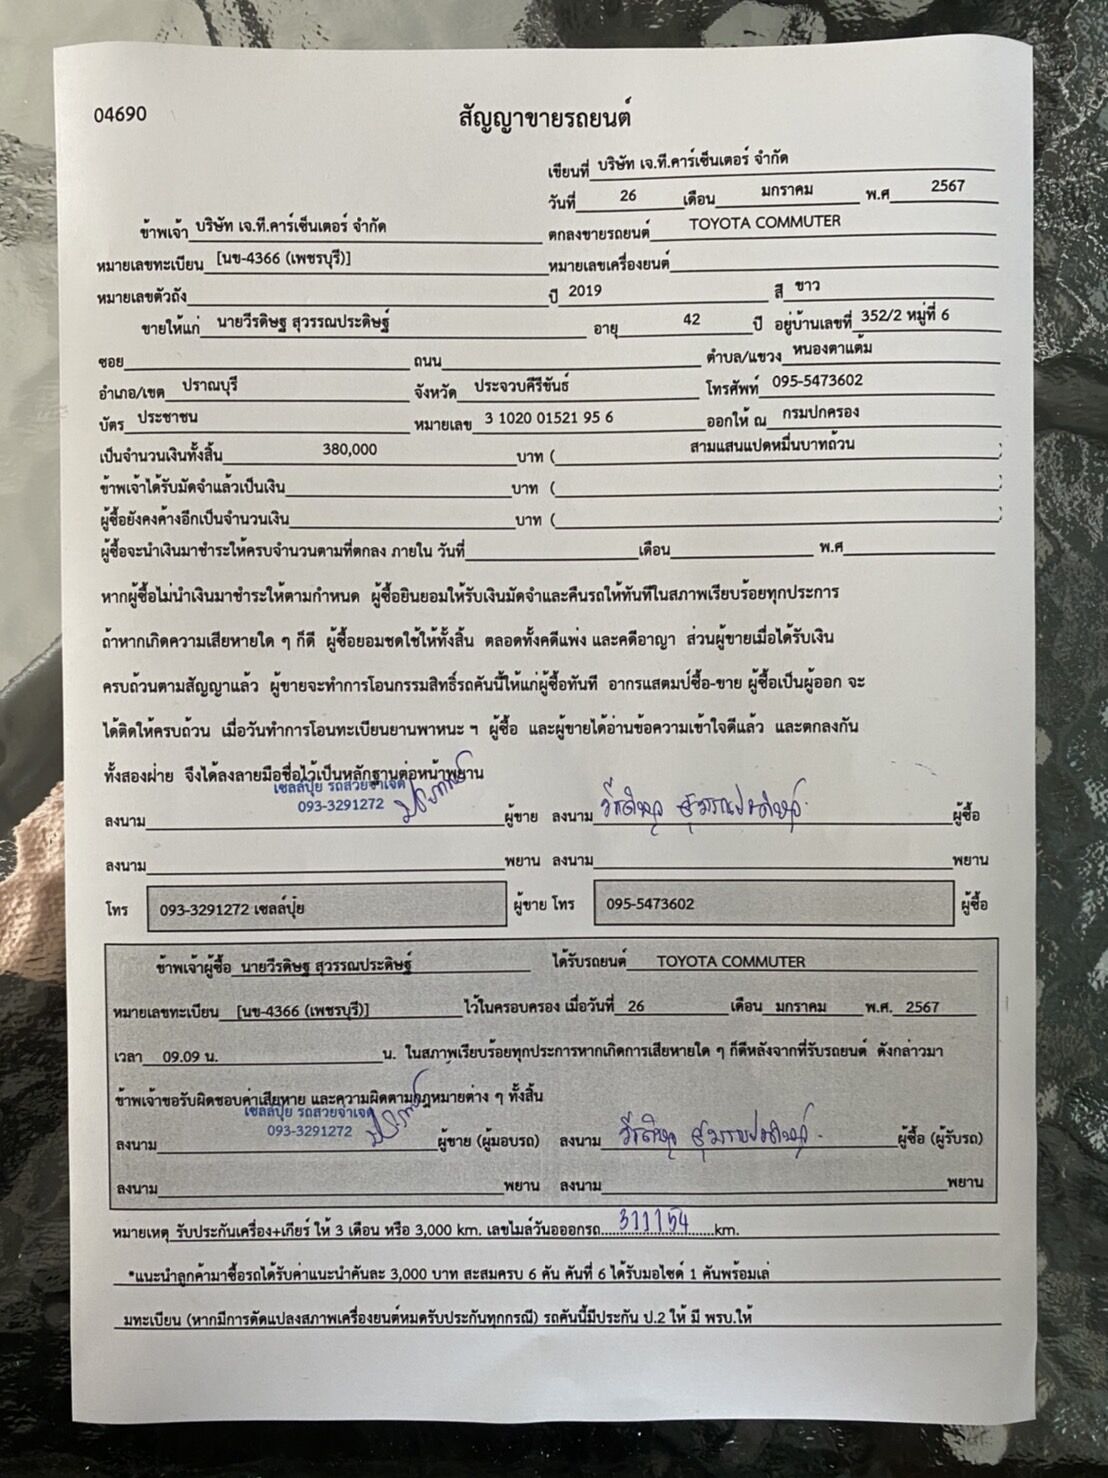 04690
สัญญาขายรถยนต์
เขียนที่ บริษัท เจ.ที.คาร์เซ็นเตอร์ จำกัด
วันที่ 26 เดือน มกราคม พ.ศ 2567
ข้าพเจ้า บริษัท เจ.ที.คาร์เซ็นเตอร์ จำกัด ตกลงขายรถยนต์ TOYOTA COMMUTER
หมายเลขทะเบียน [นข-4366 (เพชรบุรี)] หมายเลขเครื่องยนต์
หมายเลขตัวถัง ปี 2019 สี ขาว
ขายให้แก่ นายวีรดิษฐ สุวรรณประดิษฐ์ อายุ 42 ปี อยู่บ้านเลขที่ 352/2 หมู่ที่ 6
ซอย ถนน ตำบล/แขวง หนองตาแต้ม
อำเภอ/เขต ปราณบุรี จังหวัด ประจวบคีรีขันธ์ โทรศัพท์ 095-5473602
บัตร ประชาชน หมายเลข 3 1020 01521 95 6 ออกให้ ณ กรมปกครอง
เป็นจำนวนเงินทั้งสิ้น 380,000 บาท ( สามแสนแปดหมื่นบาทถ้วน )
ข้าพเจ้าได้รับมัดจำแล้วเป็นเงิน บาท ( )
ผู้ซื้อยังคงค้างอีกเป็นจำนวนเงิน บาท ( )
ผู้ซื้อจะนำเงินมาชำระให้ครบจำนวนตามที่ตกลง ภายใน วันที่ เดือน พ.ศ
หากผู้ซื้อไม่นำเงินมาชำระให้ตามกำหนด ผู้ซื้อยินยอมให้รับเงินมัดจำและคืนรถให้ทันทีในสภาพเรียบร้อยทุกประการ
ถ้าหากเกิดความเสียหายใด ๆ ก็ดี ผู้ซื้อยอมชดใช้ให้ทั้งสิ้น ตลอดทั้งคดีแพ่ง และคดีอาญา ส่วนผู้ขายเมื่อได้รับเงิน
ครบถ้วนตามสัญญาแล้ว ผู้ขายจะทำการโอนกรรมสิทธิ์รถคันนี้ให้แก่ผู้ซื้อทันที อากรแสตมป์ซื้อ-ขาย ผู้ซื้อเป็นผู้ออก จะ
ได้ติดให้ครบถ้วน เมื่อวันทำการโอนทะเบียนยานพาหนะ ฯ ผู้ซื้อ และผู้ขายได้อ่านข้อความเข้าใจดีแล้ว และตกลงกัน
ทั้งสองฝ่าย จึงได้ลงลายมือชื่อไว้เป็นหลักฐานต่อหน้าพยาน
เซลล์ปุ้ย รถสวยจำเจต
093-3291272
ลงนาม ผู้ขาย ลงนาม วีรดิษฐ สุวรรณประดิษฐ์ ผู้ซื้อ
ลงนาม พยาน ลงนาม พยาน
โทร 093-3291272 เซลล์ปุ้ย ผู้ขาย โทร 095-5473602 ผู้ซื้อ
ข้าพเจ้าผู้ซื้อ นายวีรดิษฐ สุวรรณประดิษฐ์ ได้รับรถยนต์ TOYOTA COMMUTER
หมายเลขทะเบียน [นข-4366 (เพชรบุรี)] ไว้ในครอบครอง เมื่อวันที่ 26 เดือน มกราคม พ.ศ. 2567
เวลา 09.09 น. น. ในสภาพเรียบร้อยทุกประการหากเกิดการเสียหายใด ๆ ก็ดีหลังจากที่รับรถยนต์ ดังกล่าวมา
ข้าพเจ้าขอรับผิดชอบค่าเสียหาย และความผิดตามกฎหมายต่าง ๆ ทั้งสิ้น
เซลล์ปุ้ย รถสวยจำเจต
093-3291272
ลงนาม ผู้ขาย (ผู้มอบรถ) ลงนาม วีรดิษฐ สุวรรณประดิษฐ์ ผู้ซื้อ (ผู้รับรถ)
ลงนาม พยาน ลงนาม พยาน
หมายเหตุ รับประกันเครื่อง+เกียร์ ให้ 3 เดือน หรือ 3,000 km. เลขไมล์วันออกรถ 311154 km.
*แนะนำลูกค้ามาซื้อรถได้รับค่าแนะนำคันละ 3,000 บาท สะสมครบ 6 คัน คันที่ 6 ได้รับมอไซด์ 1 คันพร้อมเล่
มทะเบียน (หากมีการดัดแปลงสภาพเครื่องยนต์หมดรับประกันทุกกรณี) รถคันนี้มีประกัน ป.2 ให้ มี พรบ.ให้